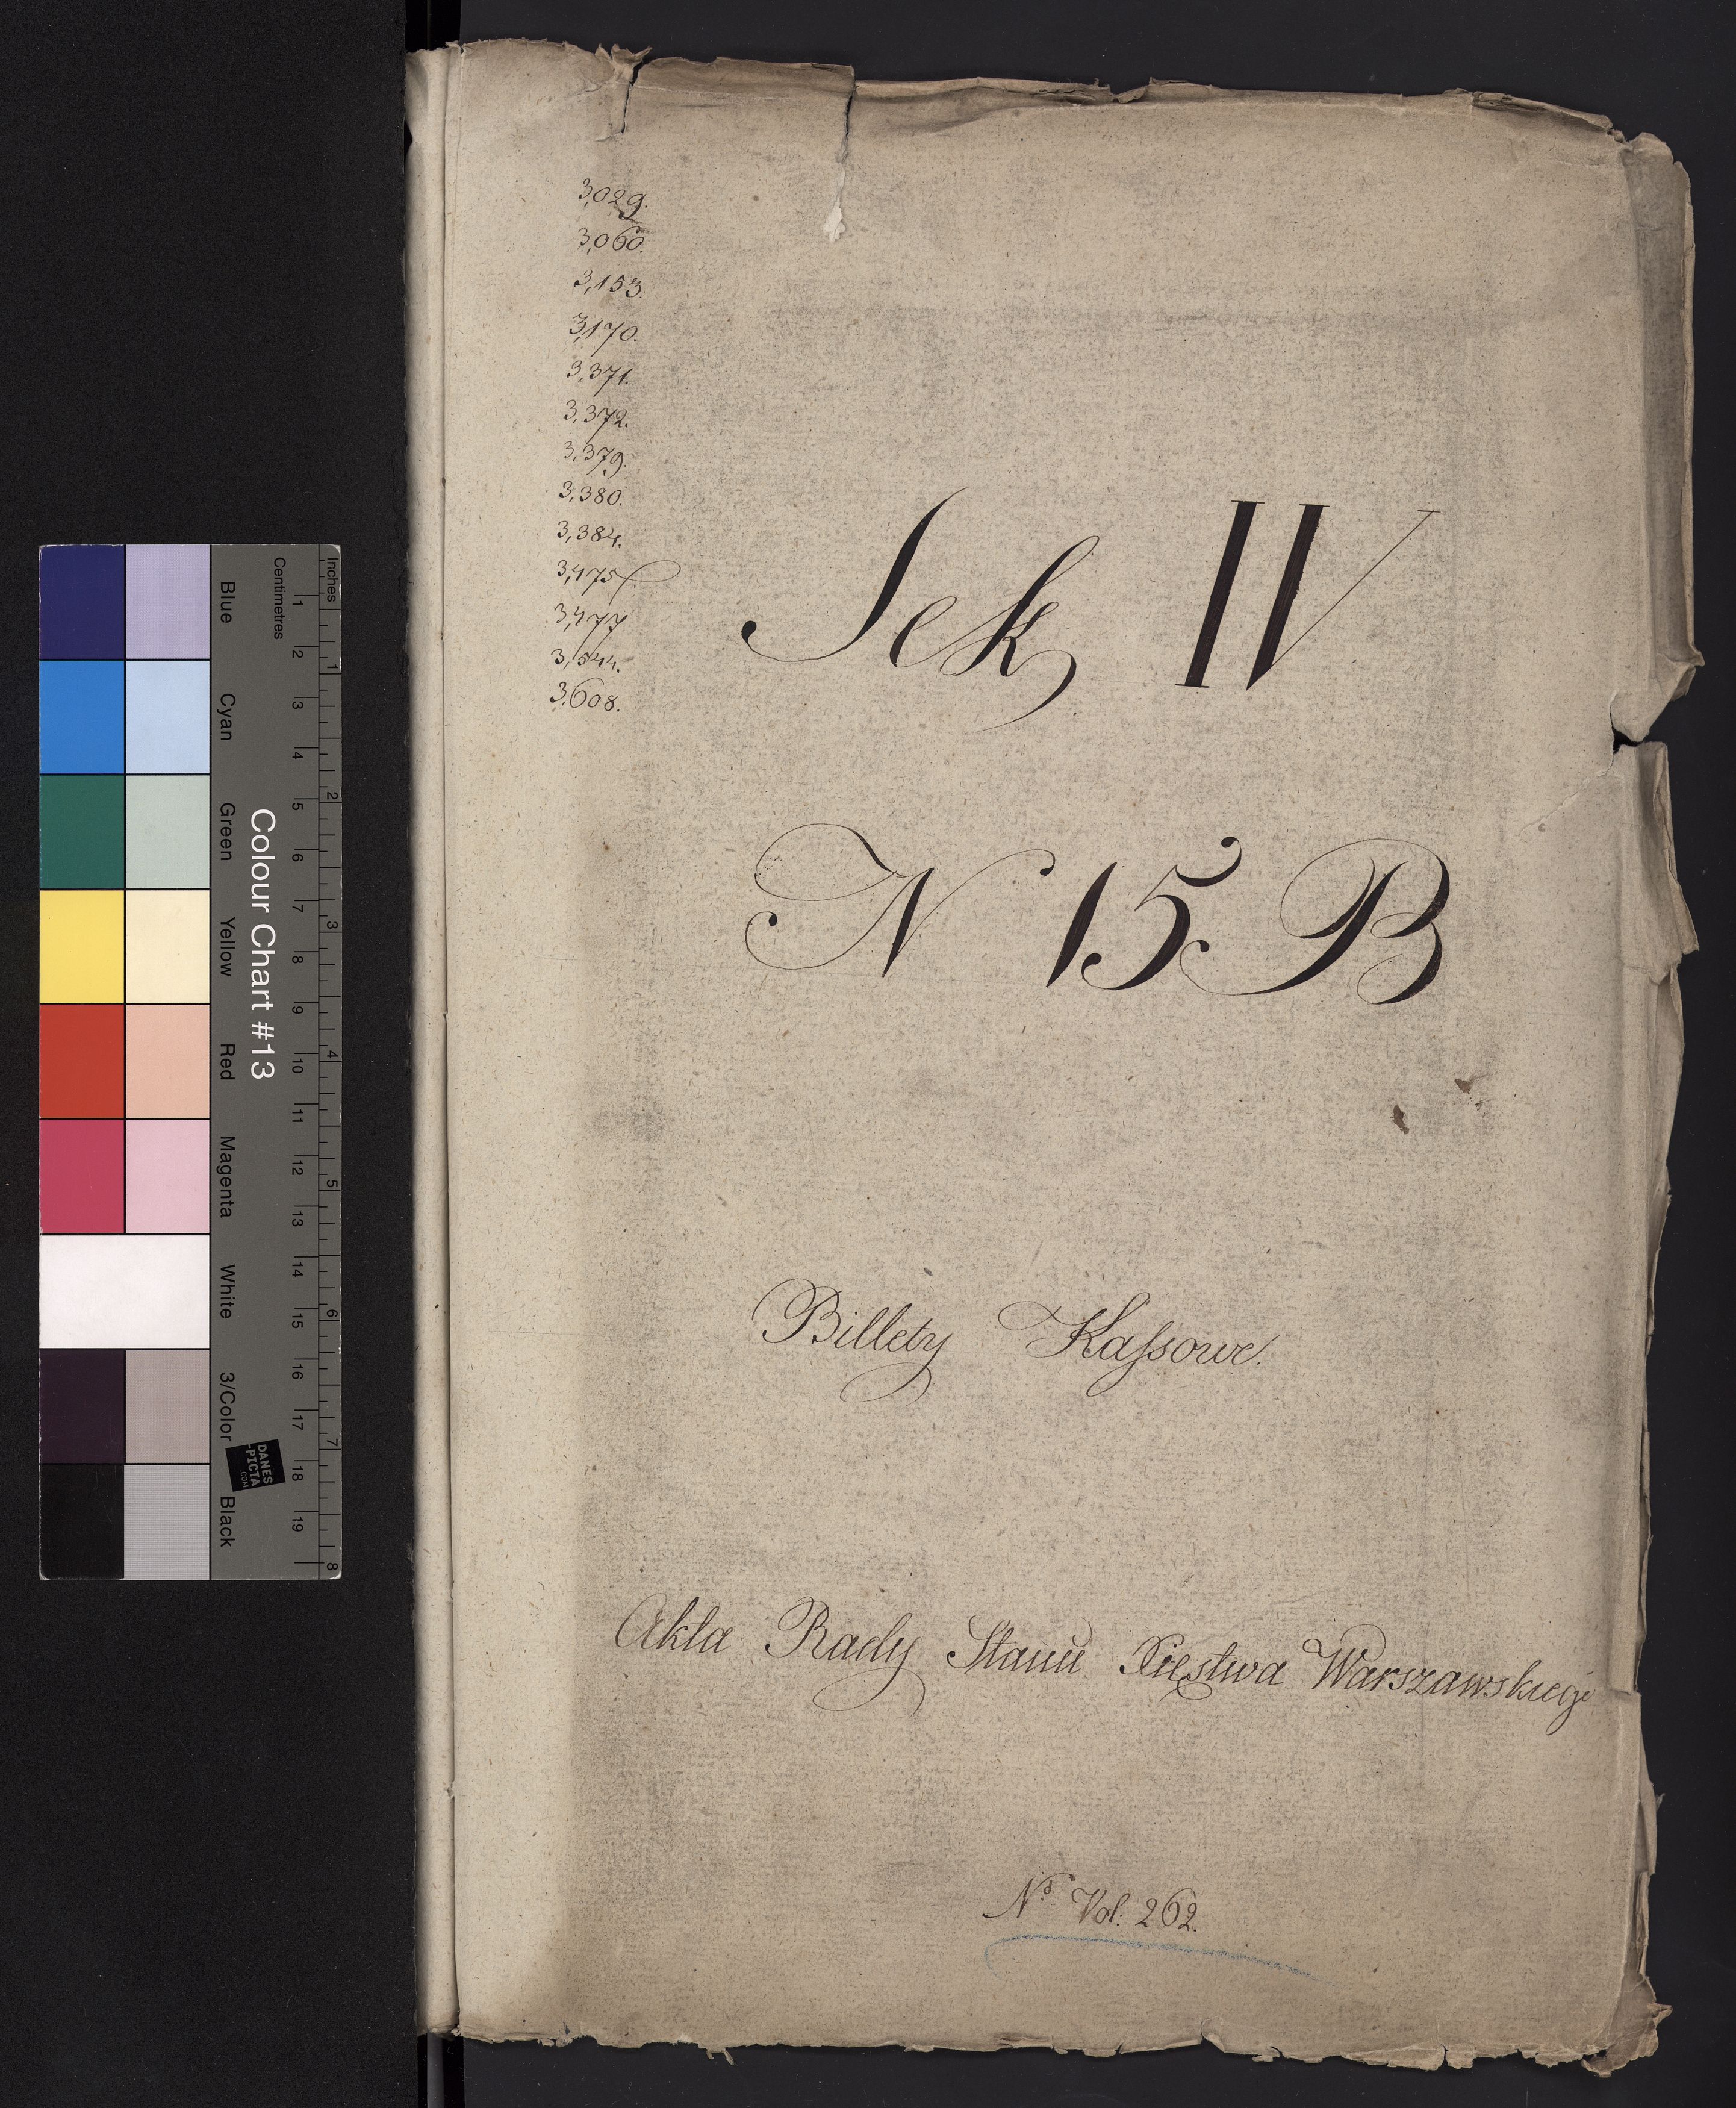 3,029.
3,060.
3,153.
3,170.
3,371.
3,372.
3,379.
3,380.
3,384.
3,475
3,477
3,544.
3,608.
Sek IV
N 15 B
Billety Kaſsowe.
Akta Rady Stanu Xięstwa Warszawskiego
No Vol: 262.
Colour Chart #13
Inches
Centimetres
1 2 3 4 5 6 7 8
1 2 3 4 5 6 7 8 9 10 11 12 13 14 15 16 17 18 19
Blue
Cyan
Green
Yellow
Red
Magenta
White
3/Color
Black
DANES
-PICTA
.COM